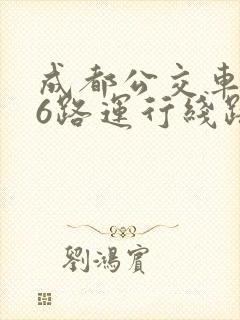 成都公交車
6路運行綫路
劉鴻賓